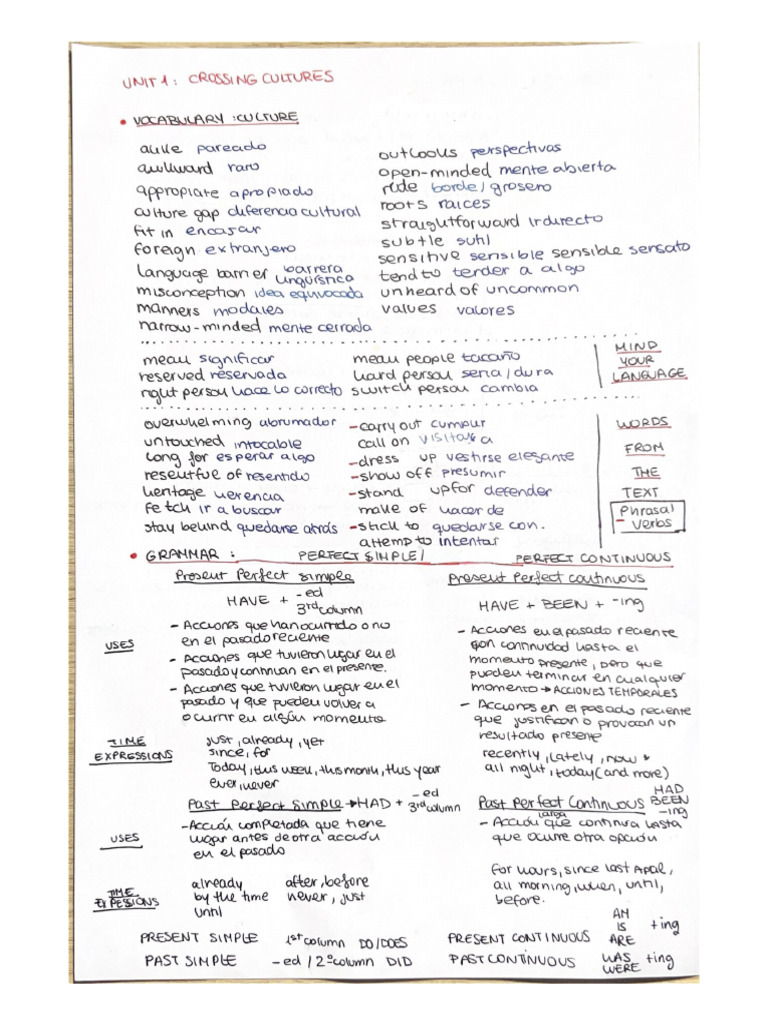 UNIT 1: CROSSING CULTURES
• VOCABULARY: CULTURE
alike pareado
awkward raro
appropiate apropiado
culture gap diferencia cultural
fit in encajar
foreign extranjero
language barrier barrera lingüística
misconception idea equivocada
manners modales
narrow-minded mente cerrada
outlooks perspectivas
open-minded mente abierta
rude borde/grosero
roots raices
straightforward ir directo
subtle sutil
sensitive sensible sensible sensato
tend to tender a algo
unheard of uncommon
values valores
mean significar
reserved reservada
right person hace lo correcto
mean people tacaño
hard person seria/dura
switch person cambia
MIND
YOUR
LANGUAGE
overwhelming abrumador
untouched intocable
long for esperar algo
resentful of resentido
heritage herencia
fetch ir a buscar
stay behind quedarse atrás
- carry out cumplir
call on visitar a
- dress up vestirse elegante
- show off presumir
- stand up for defender
make of hacer de
- stick to quedarse con.
attemp to intentar
WORDS
FROM
THE
TEXT
Phrasal
- verbs
• GRAMMAR: PERFECT SIMPLE / PERFECT CONTINUOUS
Present Perfect simple
HAVE + -ed
3rd column
USES
- Acciones que han ocurrido o no
en el pasado reciente
- Acciones que tuvieron lugar en el
pasado y continuan en el presente.
- Acciones que tuvieron lugar en el
pasado y que pueden volver a
ocurrir en algún momento
TIME
EXPRESSIONS
just, already, yet
since, for
Today, this week, this month, this year
ever, never
Present Perfect continuous
HAVE + BEEN + -ing
- Acciones en el pasado reciente
con continuidad hasta el
momento presente, pero que
pueden terminar en cualquier
momento → ACCIONES TEMPORALES
- Acciones en el pasado reciente
que justifican o provocan un
resultado presente
recently, lately, now
all night, today (and more)
Past Perfect Simple → HAD + -ed
3rd column
USES
- Acción completada que tiene
lugar antes de otra acción
en el pasado
TIME
EXPESSIONS
already after, before
by the time never, just
until
Past Perfect Continuous HAD
BEEN
-ing
larga
- Acción que continua hasta
que ocurre otra opción
for hours, since last
all morning, when, until,
before.
PRESENT SIMPLE 1st column DO/DOES
PAST SIMPLE -ed / 2º column DID
PRESENT CONTINUOUS AM
IS
ARE +ing
PAST CONTINUOUS WAS
WERE +ing